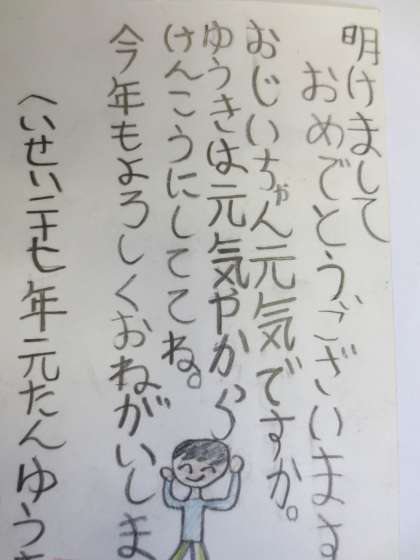 明けまして
おめでとうございます
おじいちゃん元気ですか。
ゆうきは元気やから
けんこうにしててね。
今年もよろしくおねがいしま
へいせい二十七年元たんゆう